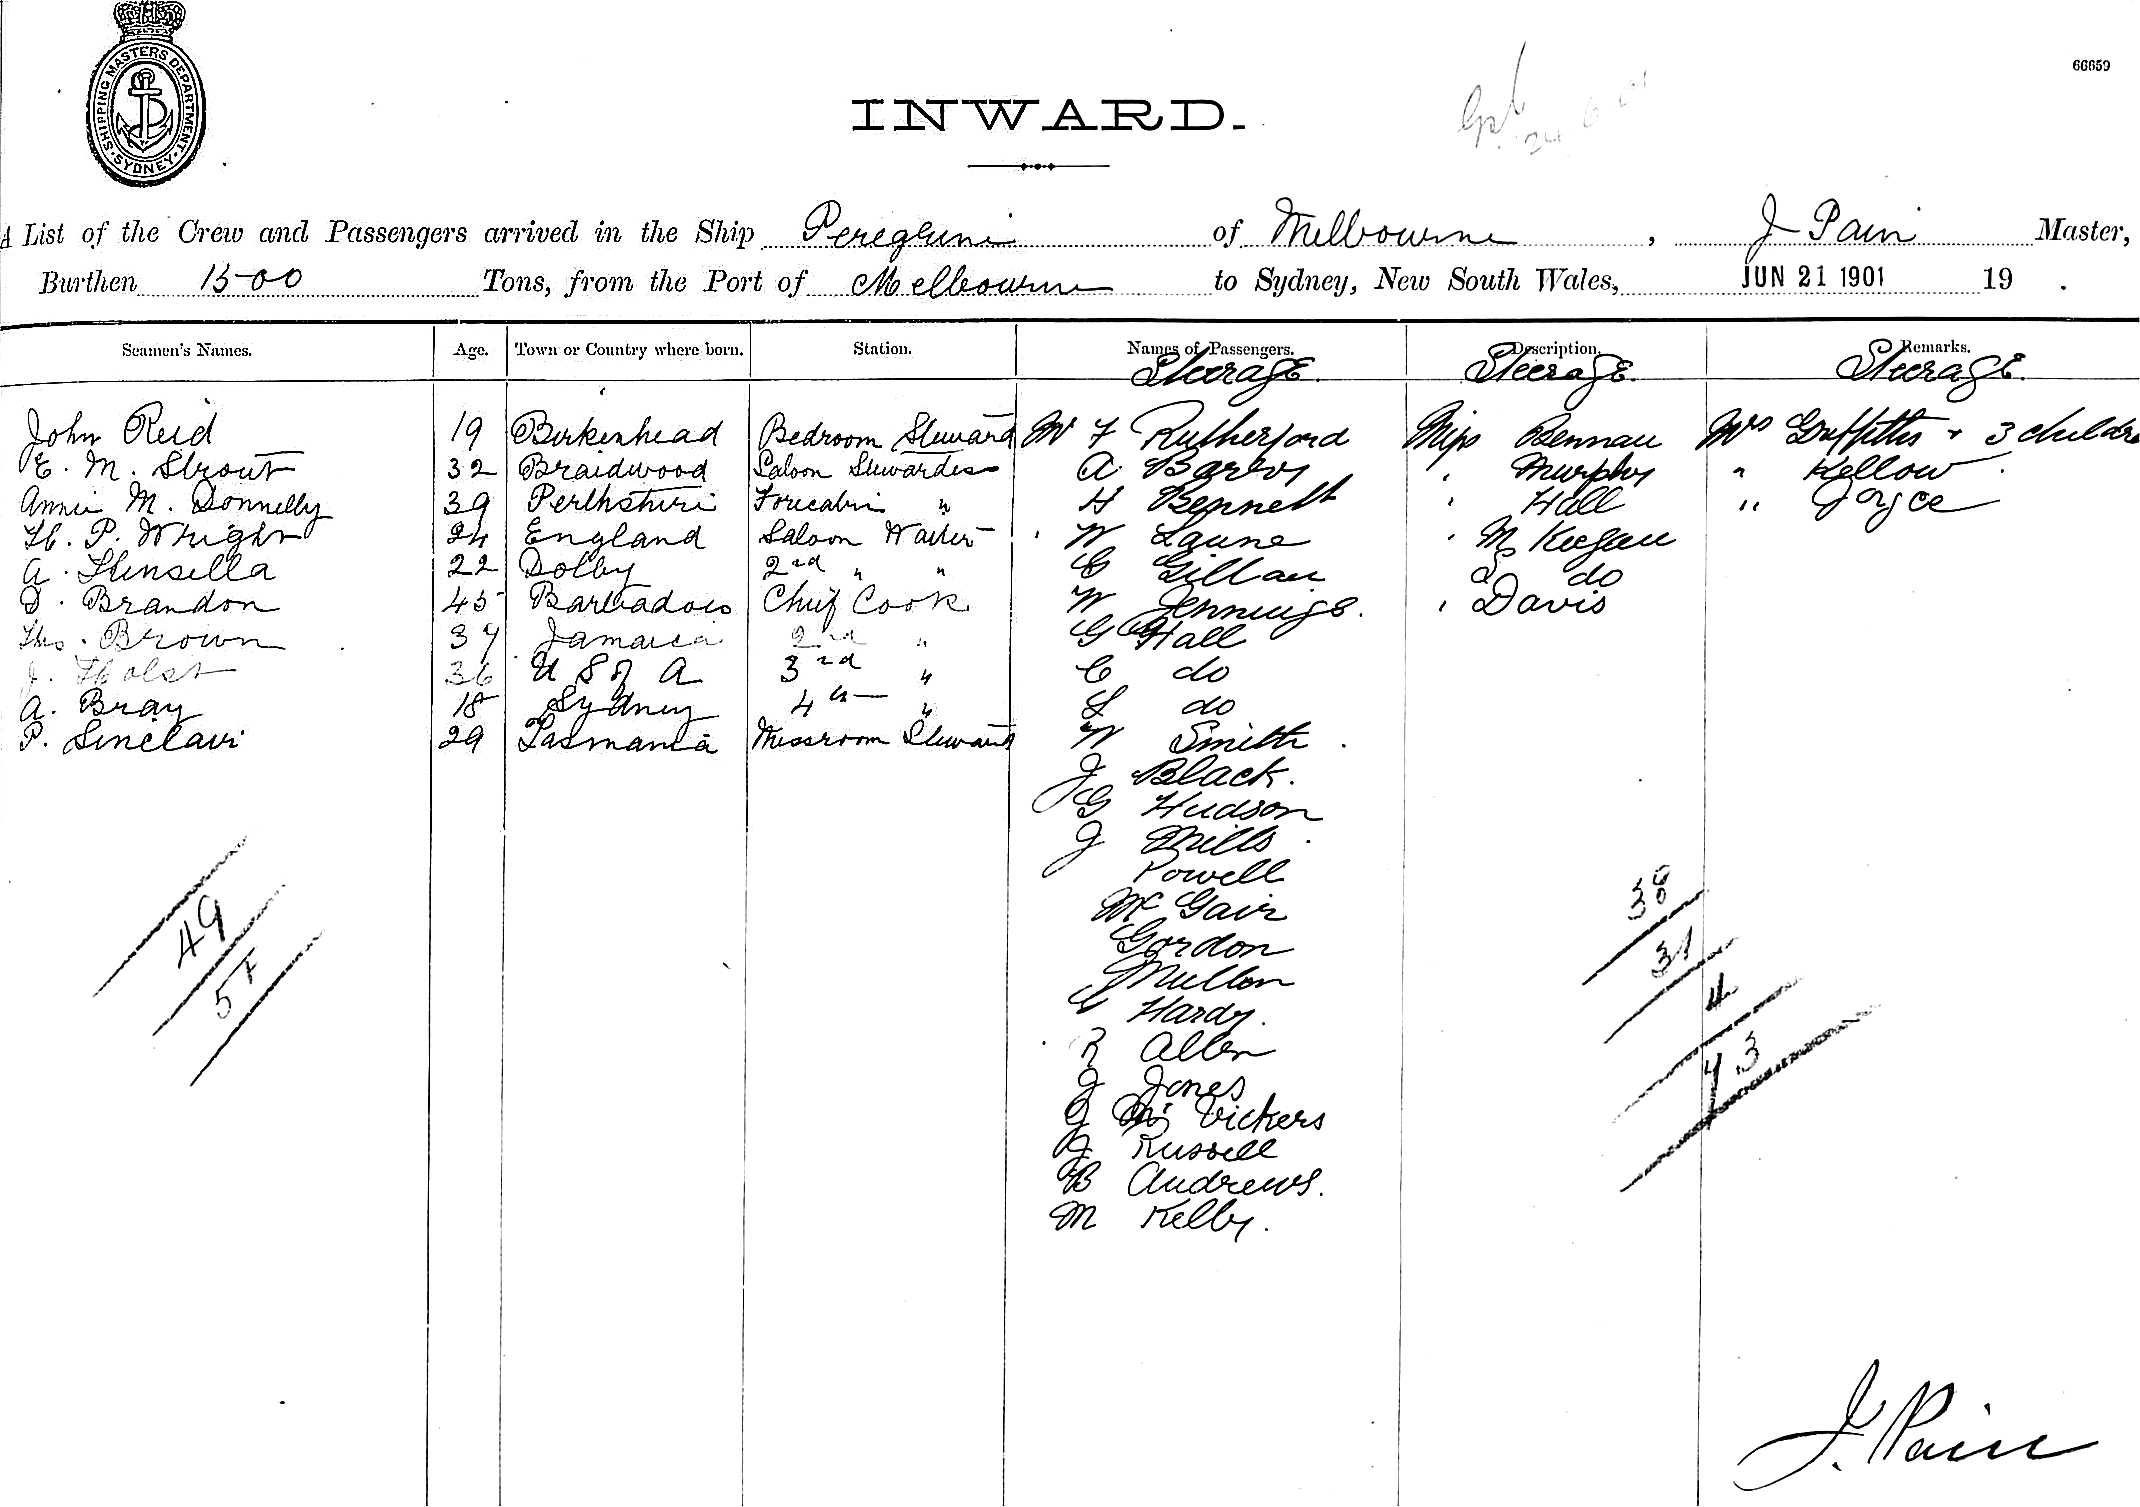 SHIPPING MASTERS DEPARTMENT. SYDNEY
66659
INWARD.
A List of the Crew and Passengers arrived in the Ship Peregrine of Melbourne, J Pain Master,
Burthen 1500 Tons, from the Port of Melbourne to Sydney, New South Wales, JUN 21 1901 19 .
Seamen's Names. Age. Town or Country where born. Station. Names of Passengers. Description. Remarks.
Steerage Steerage. Steerage.
John Reid 19 Birkenhead Bedroom Steward Mr F Rutherford Miss Bennau Mrs Griffiths + 3 childre
E. M. Strout 32 Braidwood Saloon Stewardess A " Murphy " Kellow
Annie M. Donnelly 39 Perthshire Forecabin " H Bennett " Hall " Joyce
H. P. Wright 24 England Saloon Waiter W Laune " M Keegan
A. Hensilla 22 Dolby 2nd " " G Gillan do
D. Brandon 45 Barbadoes Chief Cook W Jennings. " Davis
Thos. Brown 37 Jamaica 2nd " G Hall
J. Holst 36 U S of A 3rd " C do
A. Bray 18 Sydney 4th " L do
P. Sinclair 29 Tasmania Messroom Steward W Smith
J Black.
G Hudson
J Mills
Powell
McGair
Gordon
Mullon
Hardy.
R Allen
J Jones
J Vickers
J Russell
B Andrews.
M Kelly.
49
38
31
4
73
J. Pain